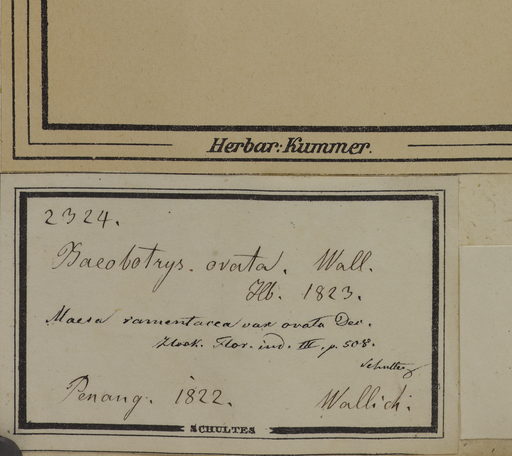 Herbar: Kummer.
2324.
Baeobotrys. ovata. Wall.
Hb. 1823.
Maesa ramentacea var ovata Dec.
Hook. Flor. ind. III. p. 508.
Schultes
Penang. 1822.
Wallich:
SCHULTES